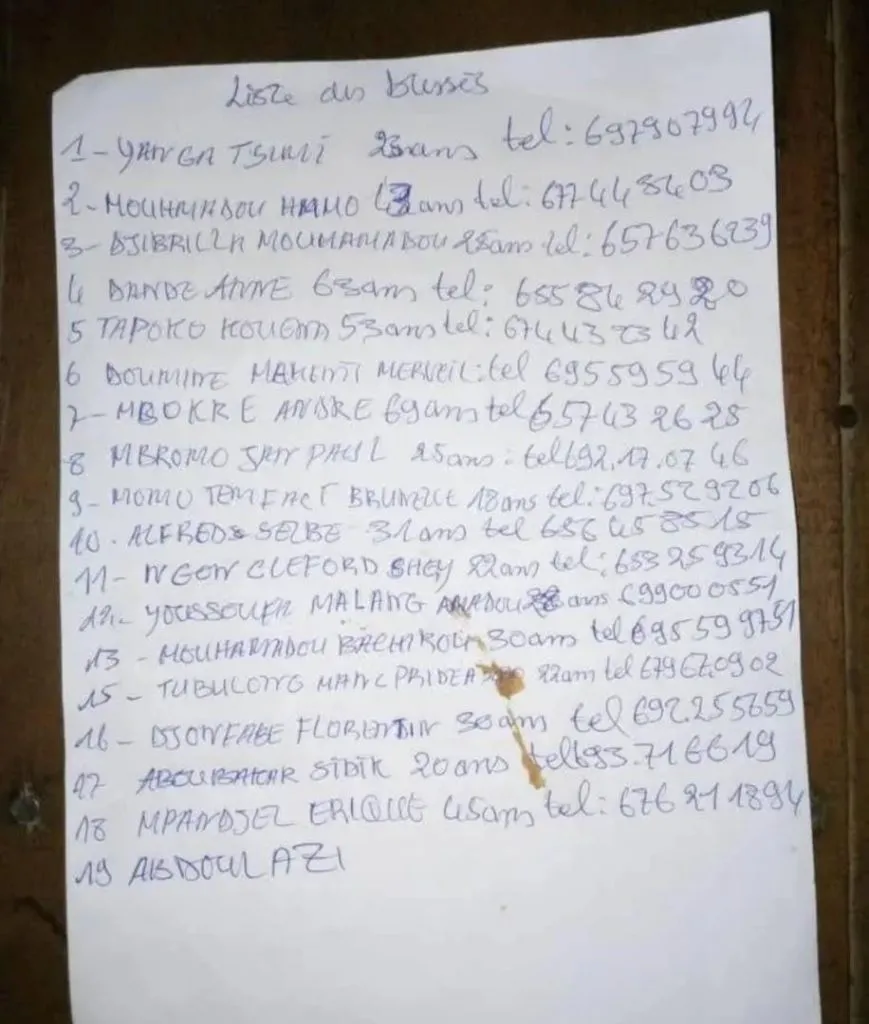 Liste des blessés
1- YANGA TSUMI 23ans tel: 697907994
2- MOUHMADOU HAMO 43ans tel: 677448403
3- DJIBRILLA MOUHAMADOU 25ans tel: 657636239
4 DANDE ANNE 63ans tel: 655 84 29 20
5 TAPOKO KOUEMA 53ans tel: 674 43 23 42
6 DOUMINE MAHENTI MERVEIL: tel 695595944
7- MBOKRE ANDRE 69ans tel 657432625
8 MBROMO JEAN PAUL 25ans: tel 692.17.07 46
9- MOMO BRUNELLE 18ans tel: 697.529206
10. ALFREDS SELBE 31ans tel 656 458515
11- NGON CLEFORD SHEY 22ans tel: 653 259314
12- YOUSSOUFA MALANG AMADOU ans 699000551
13 - MOUHAMADOU BACHIROU 30ans tel 695599751
15 - TUBULONG 22ans tel 679670902
16- DJONFABE FLORENTIN 30ans tel 692255659
17 ABOUBAKAR SIDIK 20ans tel 693.716619
18 MPANDJEL ERIQUE 45ans tel: 676 211894
19 ABDOUL AZI